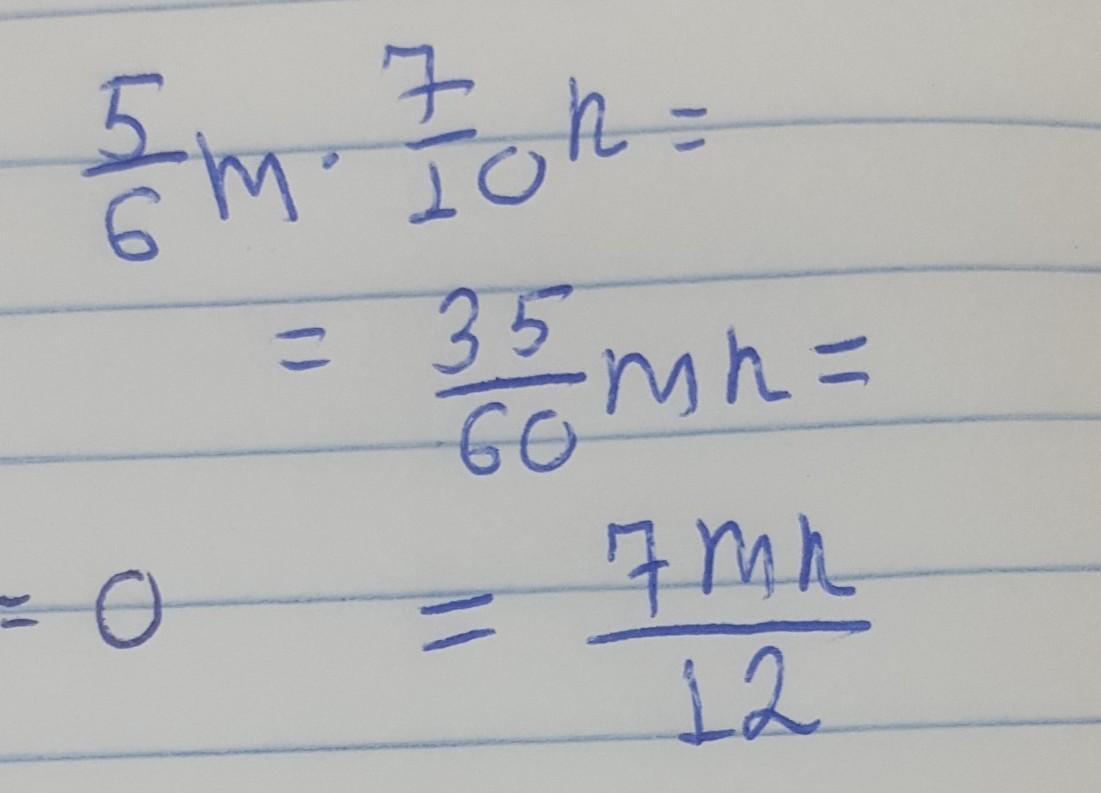 5/6 m · 7/10 n =
= 35/60 mn =
= 0 = 7mn/12